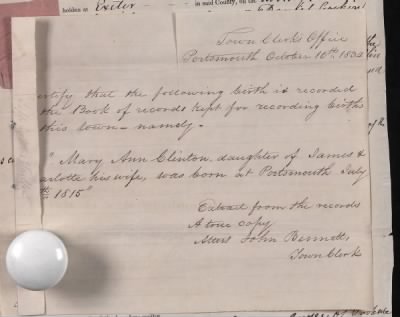 holden at Exeter in said County, on the
Town Clerk's Office
Portsmouth October 10th
ertify that the following birth is recorded
the Book of records kept for recording births
this town - namely -
"Mary Ann Clinton, daughter of James &
arlotte his wife, was born at Portsmouth July
th 1815"
Extract from the records
A true copy
Attest John Bennett,
Town Clerk